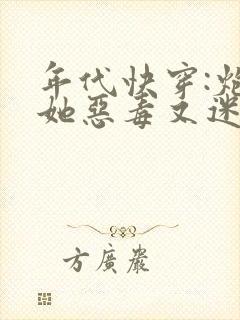 年代快穿:炮
她惡毒又迷
方廣嚴